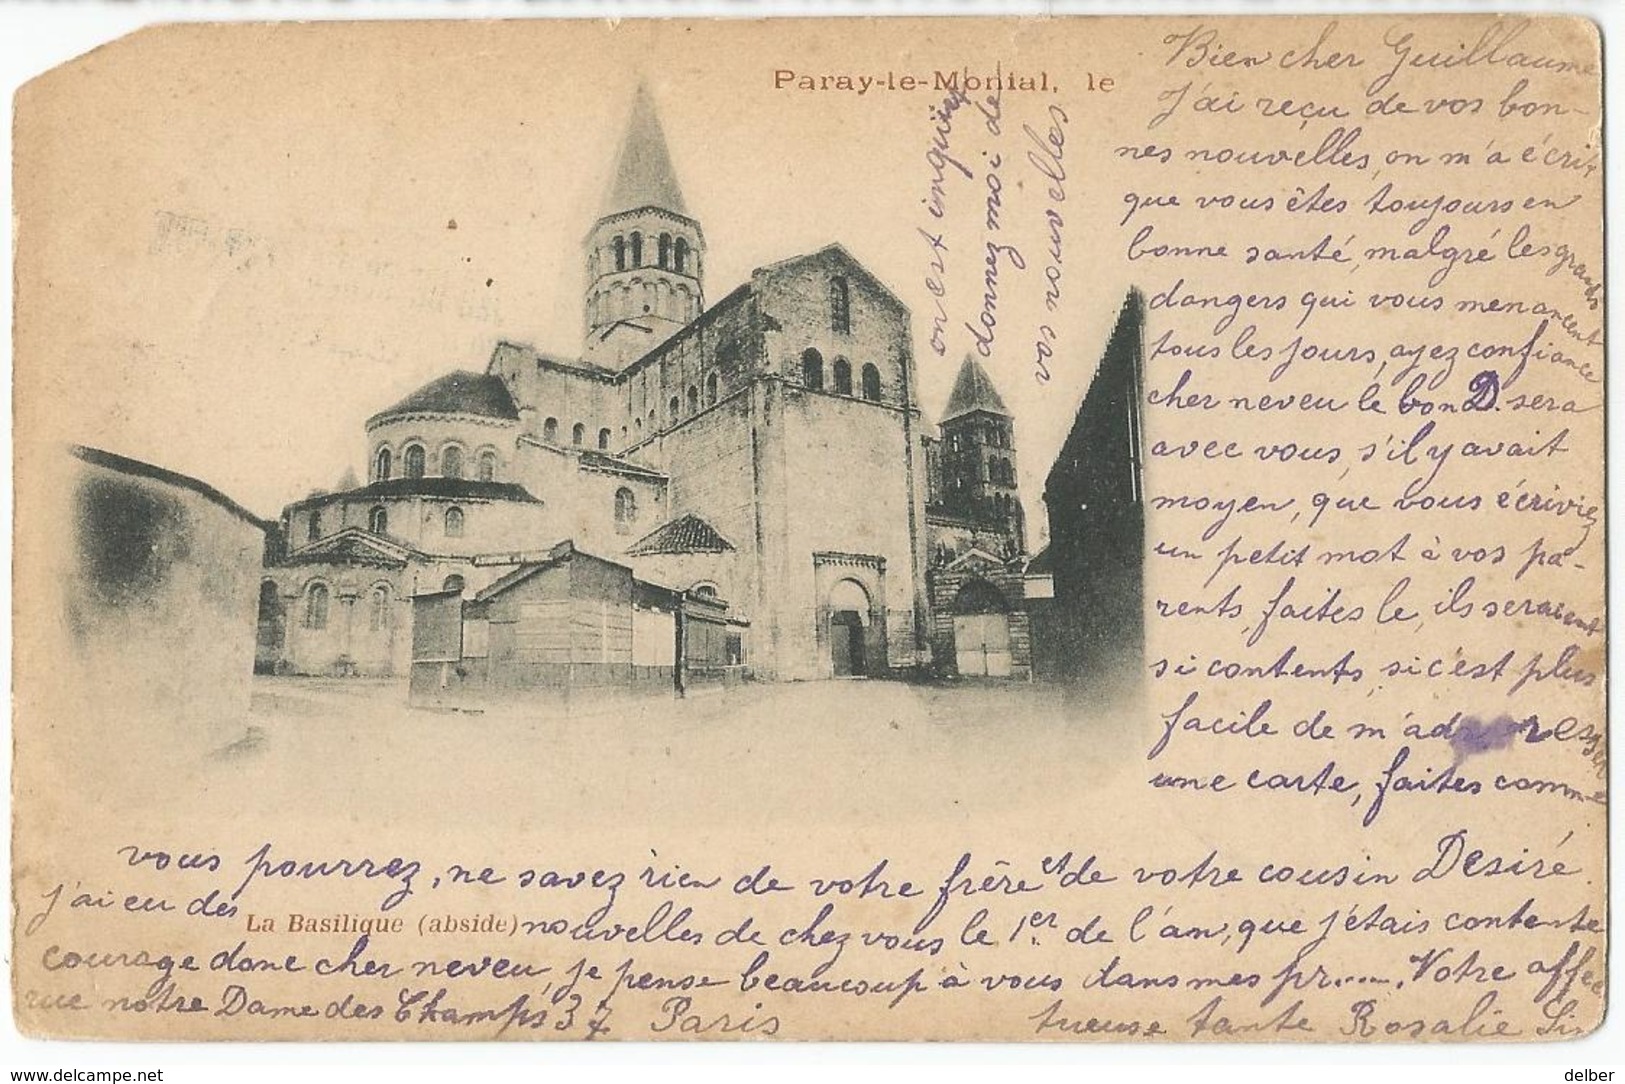 Paray-le-Monial, le
Bien cher Guillaume
J'ai reçu de vos bon-
nes nouvelles, on m'a écrit
que vous êtes toujours en
bonne santé, malgré les grands
dangers qui vous menancent
tous les jours, ayez confiance
cher neveu le bon D. sera
avec vous, s'il y avait
moyen, que vous écriviez
un petit mot à vos pa-
rents, faites le, ils seraient
si contents, si c'est plus
facile de m'adresser
une carte, faites comme
vous pourrez, ne savez rien de votre frère et de votre cousin Desiré.
J'ai eu des nouvelles de chez vous le 1er de l'an, que j'étais contente
La Basilique (abside)
courage donc cher neveu, je pense beaucoup à vous dans mes pr..... Votre affec
tueuse tante Rosalie
rue notre Dame des Champs 37 Paris
on est inquiet
donnez moi de
ces car
www.delcampe.net
delber